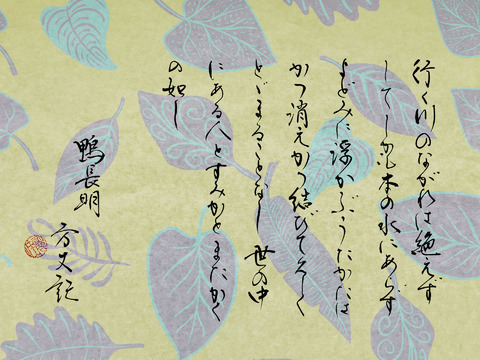 行く川のながれは絶えず
してしかも本の水にあらず
よどみに浮かぶうたかたは
かつ消えかつ結びて久しく
とゞまることなし 世の中
にある人とすみかとまたかく
の如し
鴨長明
方丈記